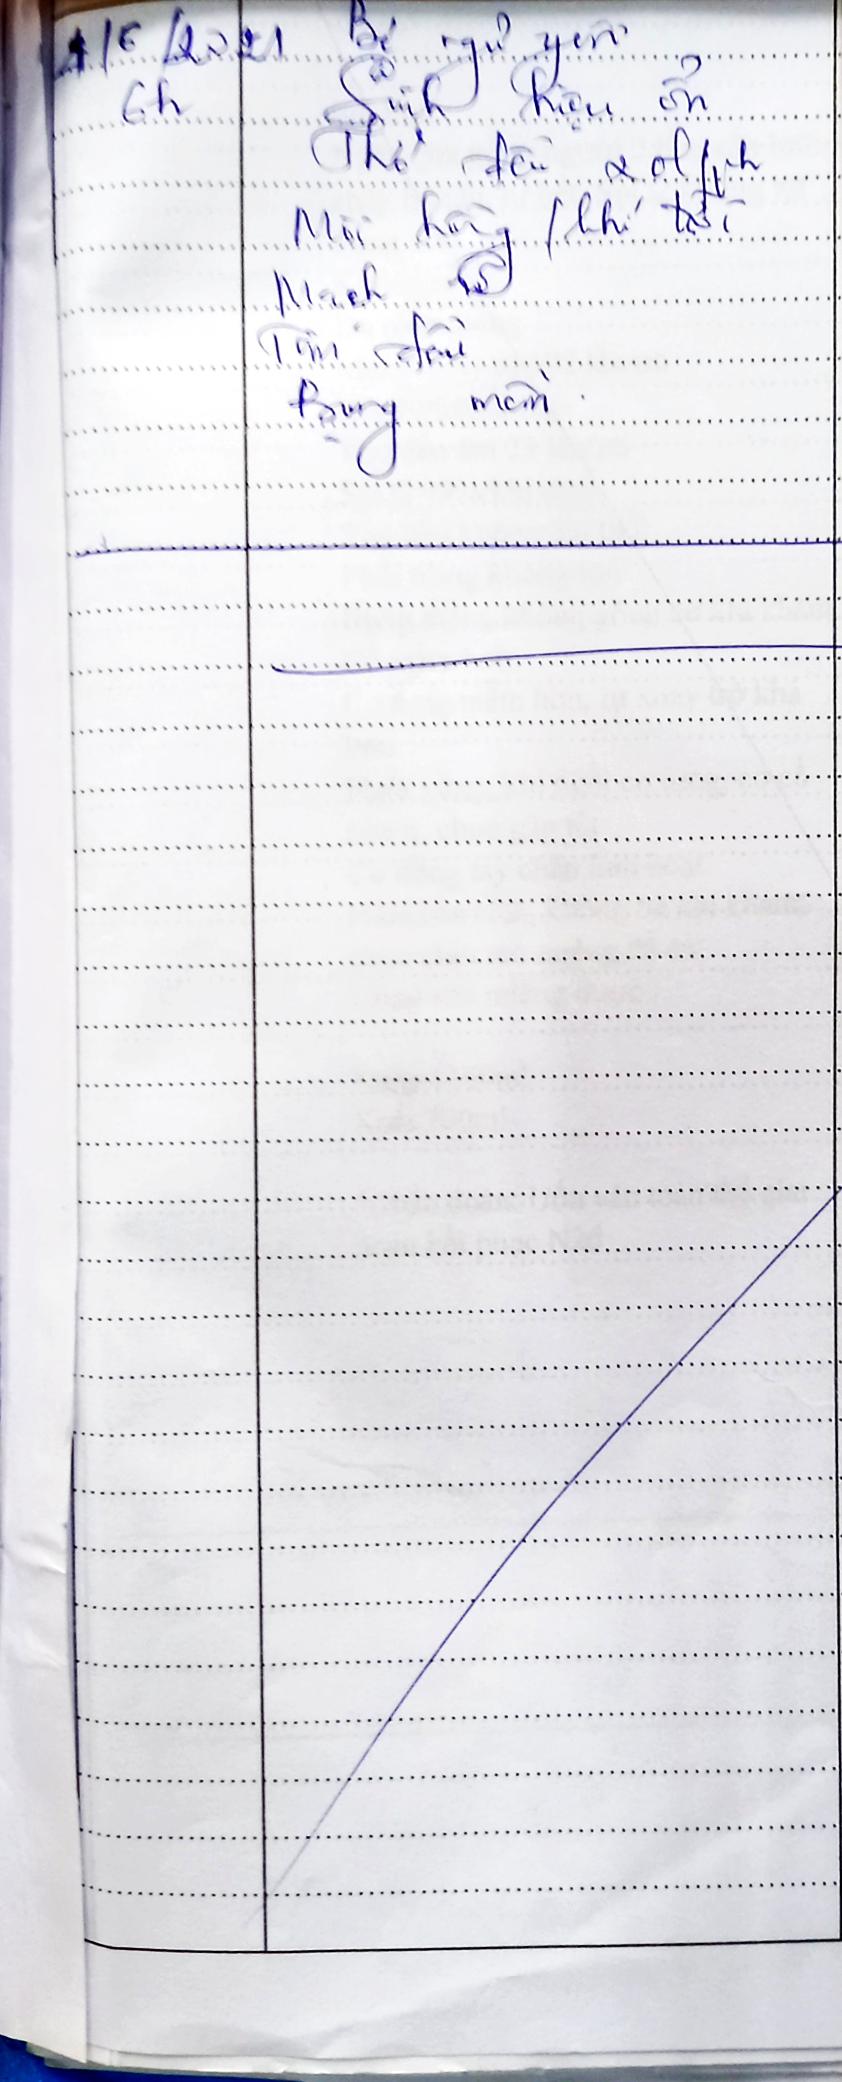 1/6/2021 Bé ngủ yên
6h Sinh hiệu ổn
Thở đều 20l/ph
Môi hồng /khí trời
Mạch rõ
Tim đều
Bụng mềm.